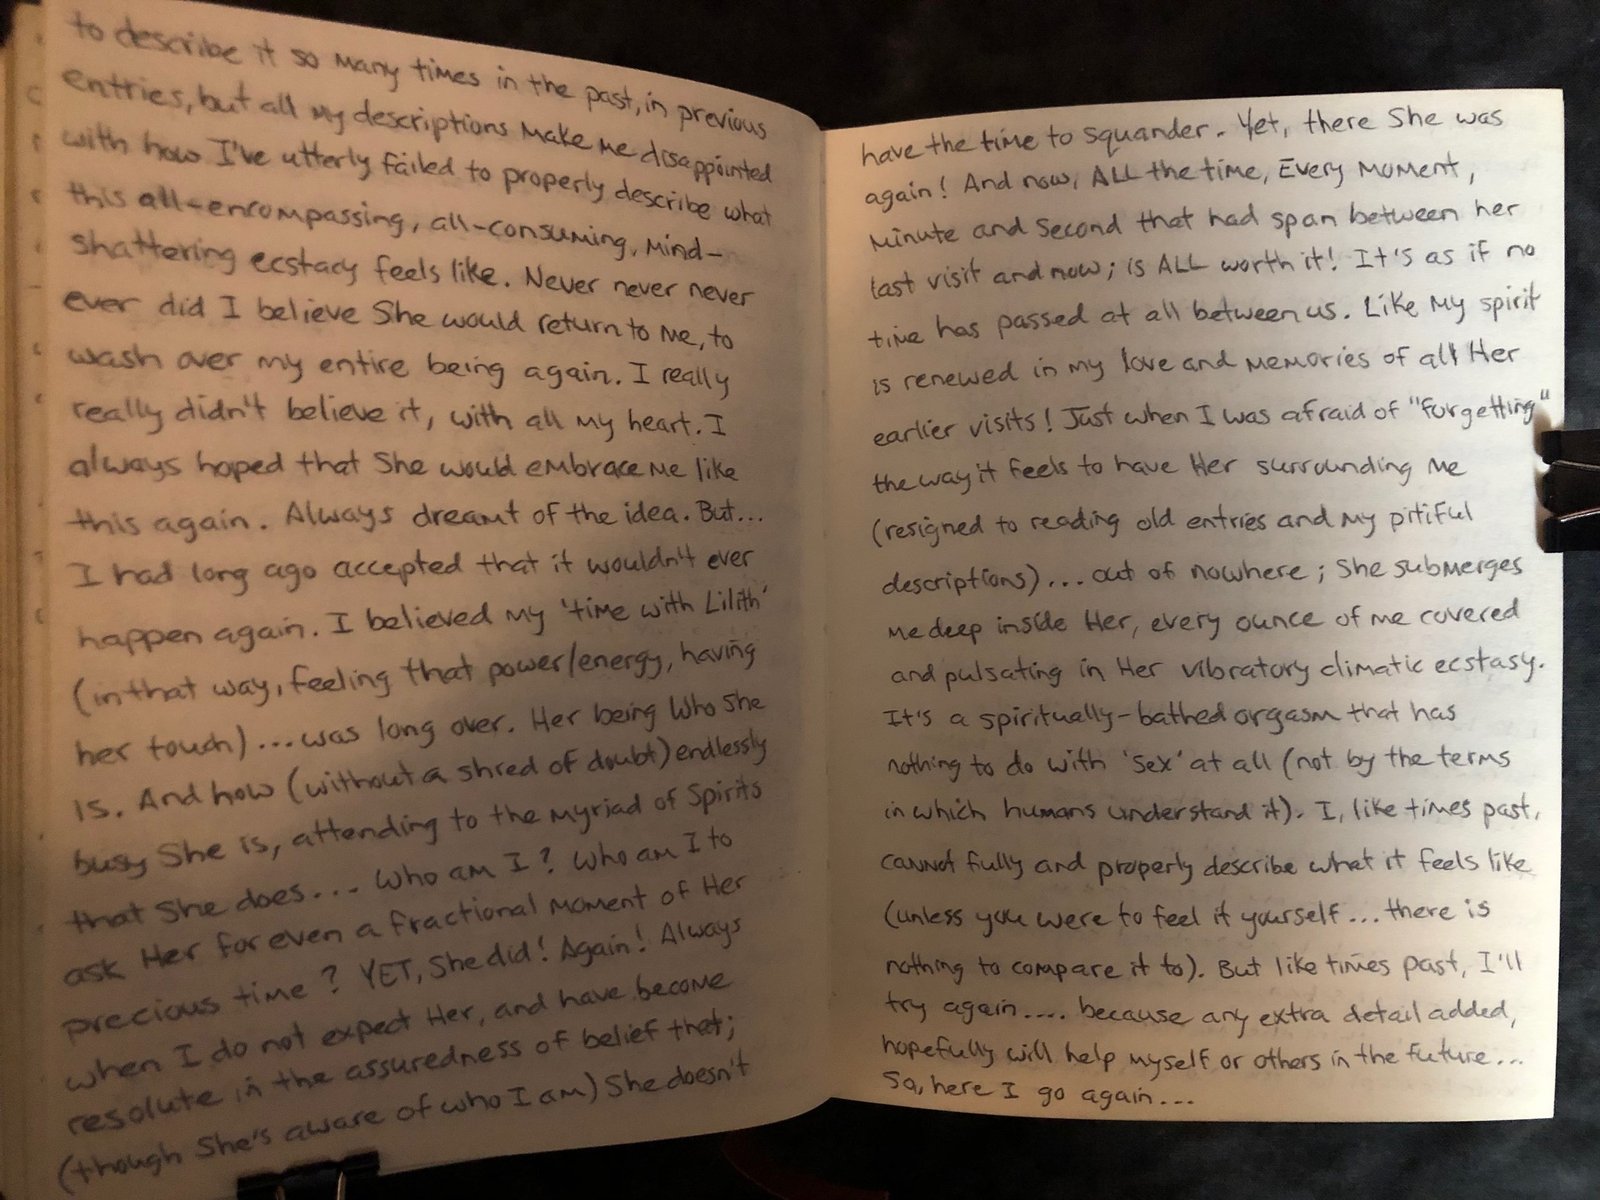 to describe it so many times in the past, in previous
entries, but all my descriptions make me disappointed
with how I've utterly failed to properly describe what
this all-encompassing, all-consuming, mind-
shattering ecstacy feels like. Never never never
ever did I believe She would return to me, to
wash over my entire being again. I really
really didn't believe it, with all my heart. I
always hoped that She would embrace me like
this again. Always dreamt of the idea. But...
I had long ago accepted that it wouldn't ever
happen again. I believed my 'time with Lilith'
(in that way, feeling that power/energy, having
her touch)...was long over. Her being Who She
Is. And how (without a shred of doubt) endlessly
busy She is, attending to the myriad of Spirits
that She does... Who am I? Who am I to
ask Her for even a fractional moment of Her
precious time? YET, She did! Again! Always
when I do not expect Her, and have become
resolute in the assuredness of belief that;
(though She's aware of who I am) She doesn't
have the time to squander. Yet, there She was
again! And now, ALL the time, Every Moment,
Minute and Second that had span between her
last visit and now; is ALL worth it! It's as if no
time has passed at all between us. Like my spirit
is renewed in my love and memories of all Her
earlier visits! Just when I was afraid of "forgetting"
the way it feels to have Her surrounding me
(resigned to reading old entries and my pitiful
descriptions)... out of nowhere; She submerges
me deep inside Her, every ounce of me covered
and pulsating in Her vibratory climatic ecstasy.
It's a spiritually-bathed orgasm that has
nothing to do with 'sex' at all (not by the terms
in which humans understand it). I, like times past,
cannot fully and properly describe what it feels like
(unless you were to feel it yourself... there is
nothing to compare it to). But like times past, I'll
try again.... because any extra detail added,
hopefully will help myself or others in the future...
So, here I go again...